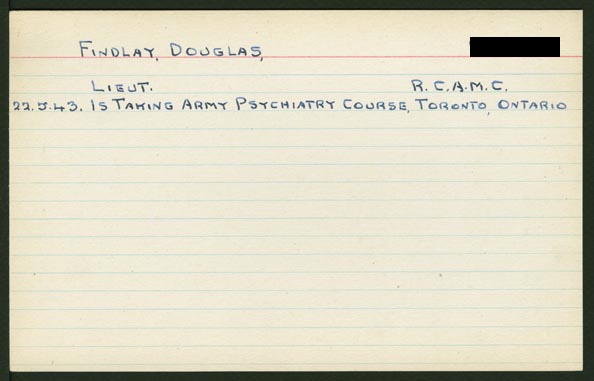 FINDLAY, DOUGLAS,
LIEUT. R.C.A.M.C.
22.5.43. IS TAKING ARMY PSYCHIATRY COURSE, TORONTO, ONTARIO